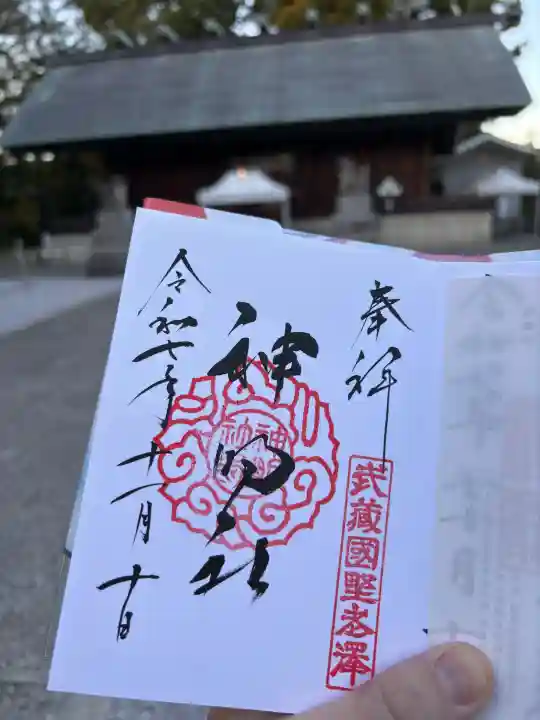 奉拝
武蔵國野老澤
神明社
令和七年十一月十日